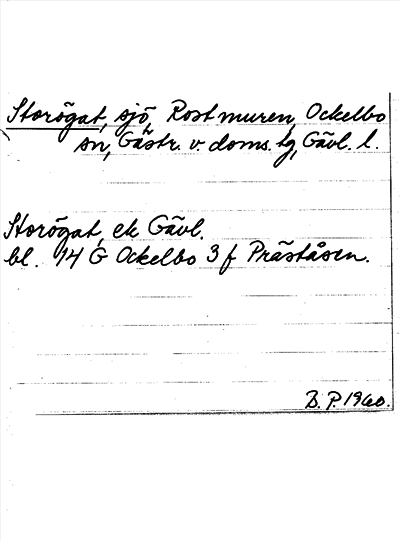 Storögat, sjö, Rostmuren, Ockelbo
sn, Gästr. v. doms. tg, Gävl. l.
Storögat, ek Gävl.
bl. 14 G Ockelbo 3 f Präståsen.
B.P. 1960.